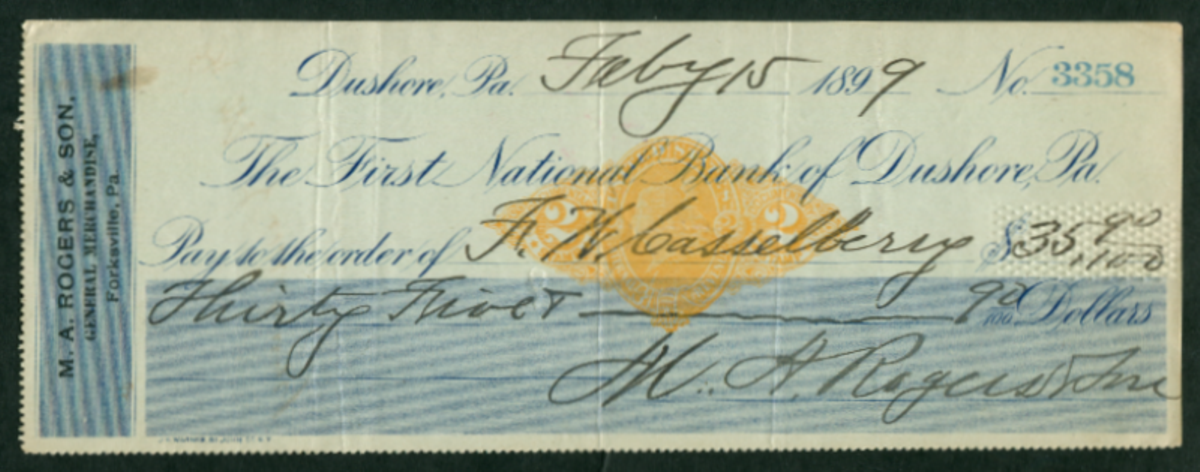 M. A. ROGERS & SON,
GENERAL MERCHANDISE,
Forksville, Pa.
Dushore, Pa. Feby 15 1899 No. 3358
The First National Bank of Dushore, Pa.
2 2
Pay to the order of F. W. Casselberry $35 90/100
Thirty Five & 90/100 Dollars
M. A. Rogers & Son